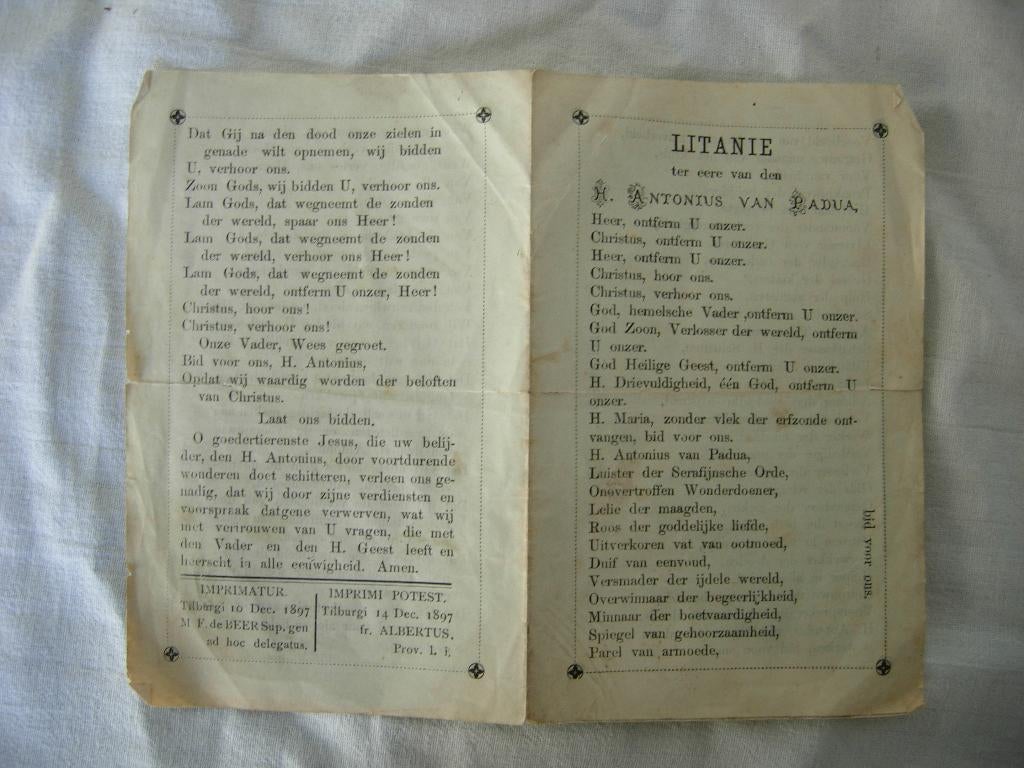 Dat Gij na den dood onze zielen in
genade wilt opnemen, wij bidden
U, verhoor ons.
Zoon Gods, wij bidden U, verhoor ons.
Lam Gods, dat wegneemt de zonden
der wereld, spaar ons Heer!
Lam Gods, dat wegneemt de zonden
der wereld, verhoor ons Heer!
Lam Gods, dat wegneemt de zonden
der wereld, ontferm U onzer, Heer!
Christus, hoor ons!
Christus, verhoor ons!
Onze Vader, Wees gegroet.
Bid voor ons, H. Antonius,
Opdat wij waardig worden der beloften
van Christus.
Laat ons bidden.
O goedertierenste Jesus, die uw belij-
der, den H. Antonius, door voortdurende
wonderen doet schitteren, verleen ons ge-
nadig, dat wij door zijne verdiensten en
voorspraak datgene verwerven, wat wij
met vertrouwen van U vragen, die met
den Vader en den H. Geest leeft en
heerscht in alle eeuwigheid. Amen.
IMPRIMATUR.
Tilburgi 10 Dec. 1897
M. F. de BEER Sup. gen
ad hoc delegatus.
IMPRIMI POTEST.
Tilburgi 14 Dec. 1897
fr. ALBERTUS.
Prov. l. j.
LITANIE
ter eere van den
H. ANTONIUS VAN PADUA,
Heer, ontferm U onzer.
Christus, ontferm U onzer.
Heer, ontferm U onzer.
Christus, hoor ons.
Christus, verhoor ons.
God, hemelsche Vader ,ontferm U onzer.
God Zoon, Verlosser der wereld, ontferm
U onzer.
God Heilige Geest, ontferm U onzer.
H. Drievuldigheid, één God, ontferm U
onzer.
H. Maria, zonder vlek der erfzonde ont-
vangen, bid voor ons.
H. Antonius van Padua,
Luister der Serafijnsche Orde,
Onovertroffen Wonderdoener,
Lelie der maagden,
Roos der goddelijke liefde,
Uitverkoren vat van ootmoed,
Duif van eenvoud,
Versmader der ijdele wereld,
Overwinnaar der begeerlijkheid,
Minnaar der boetvaardigheid,
Spiegel van gehoorzaamheid,
Parel van armoede,
bid voor ons.